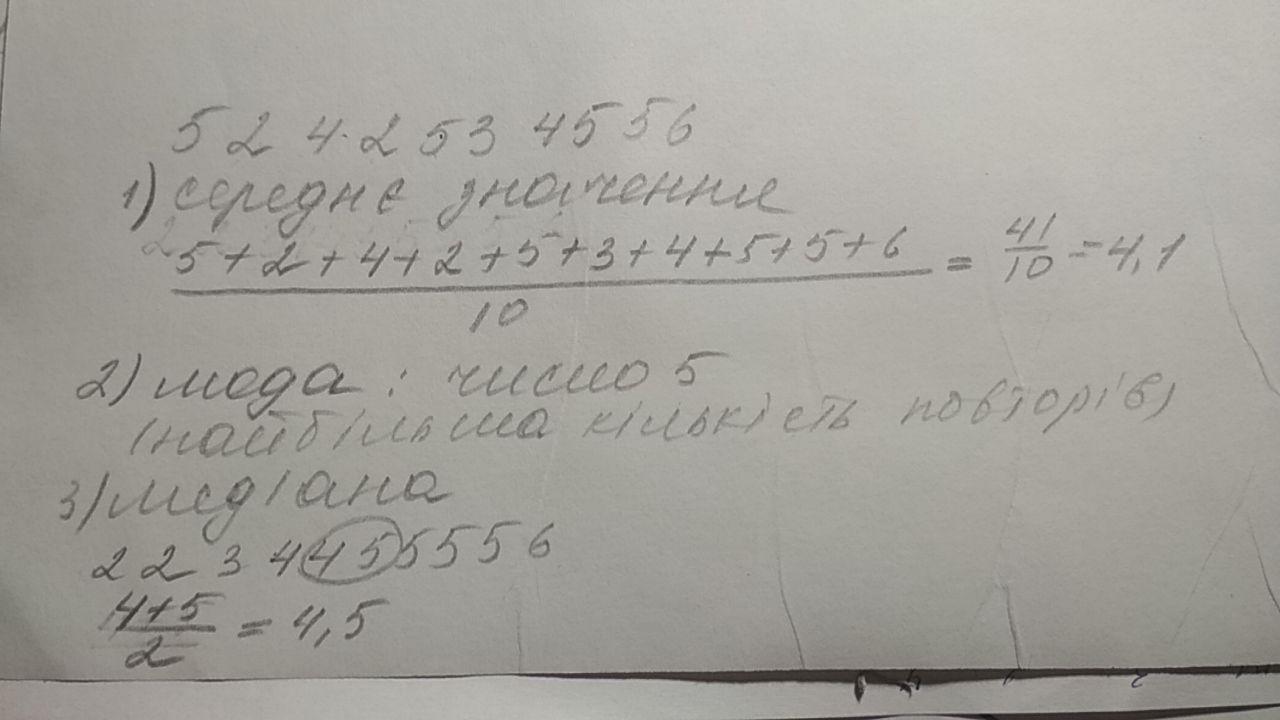 5 2 4 2 5 3 4 5 5 6
1) середнє значення
5+2+4+2+5+3+4+5+5+6 = 41/10 = 4,1
10
2) мода : число 5
(найбільша кількість повторів)
3) медіана
2 2 3 4 4 5 5 5 5 6
4+5/2 = 4,5